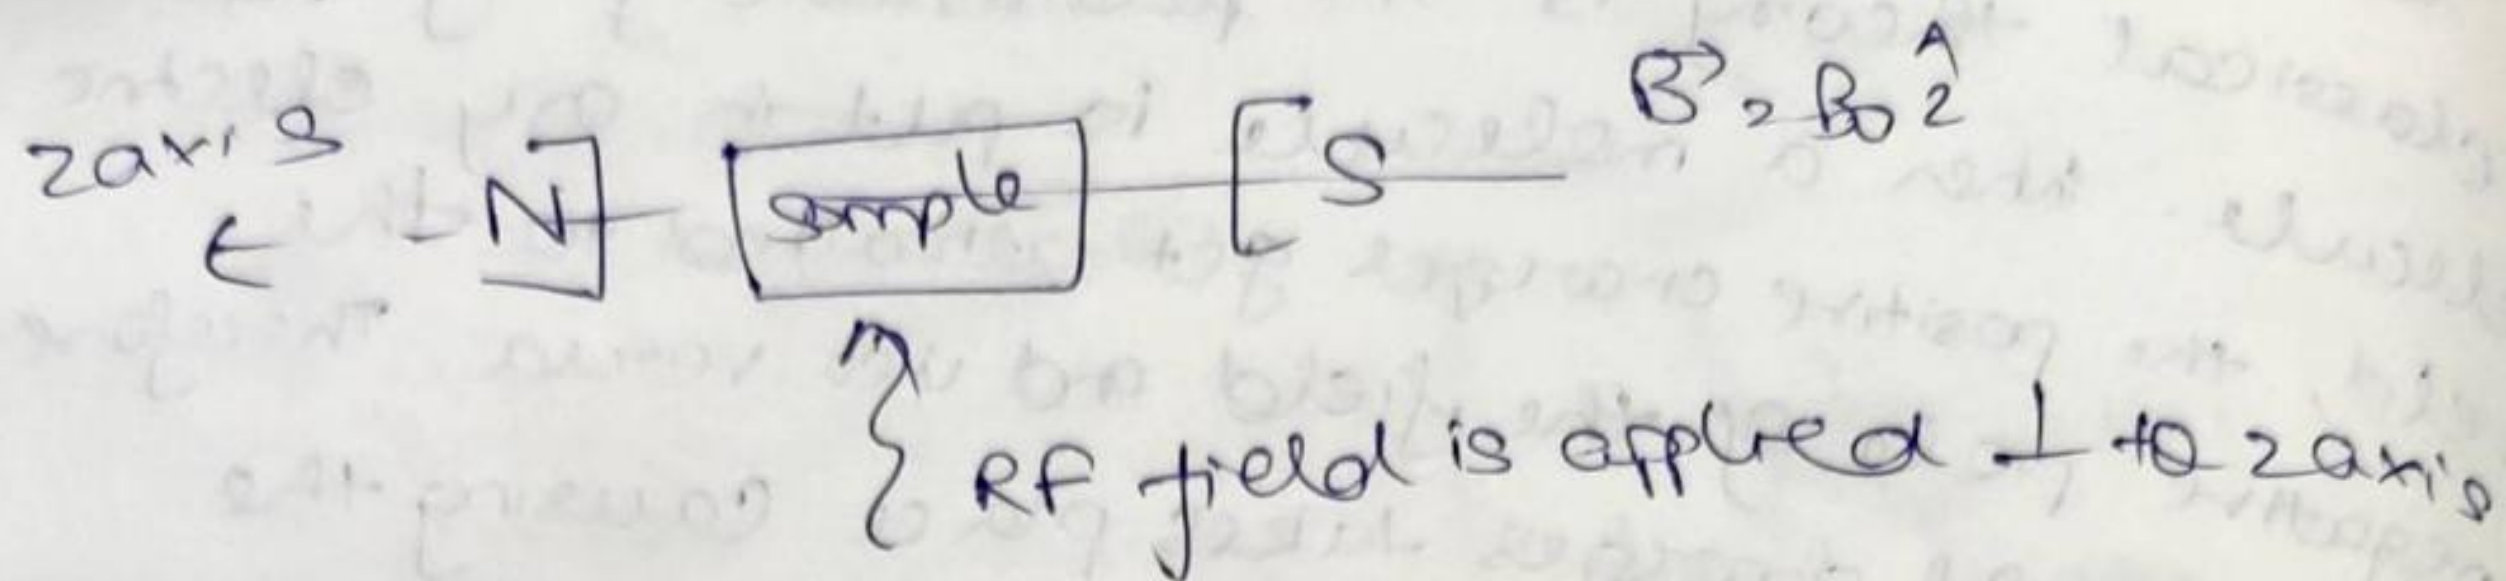 z axis
N
sample
S
B⃗ = B₀ ẑ
RF field is applied ⊥ to z axis